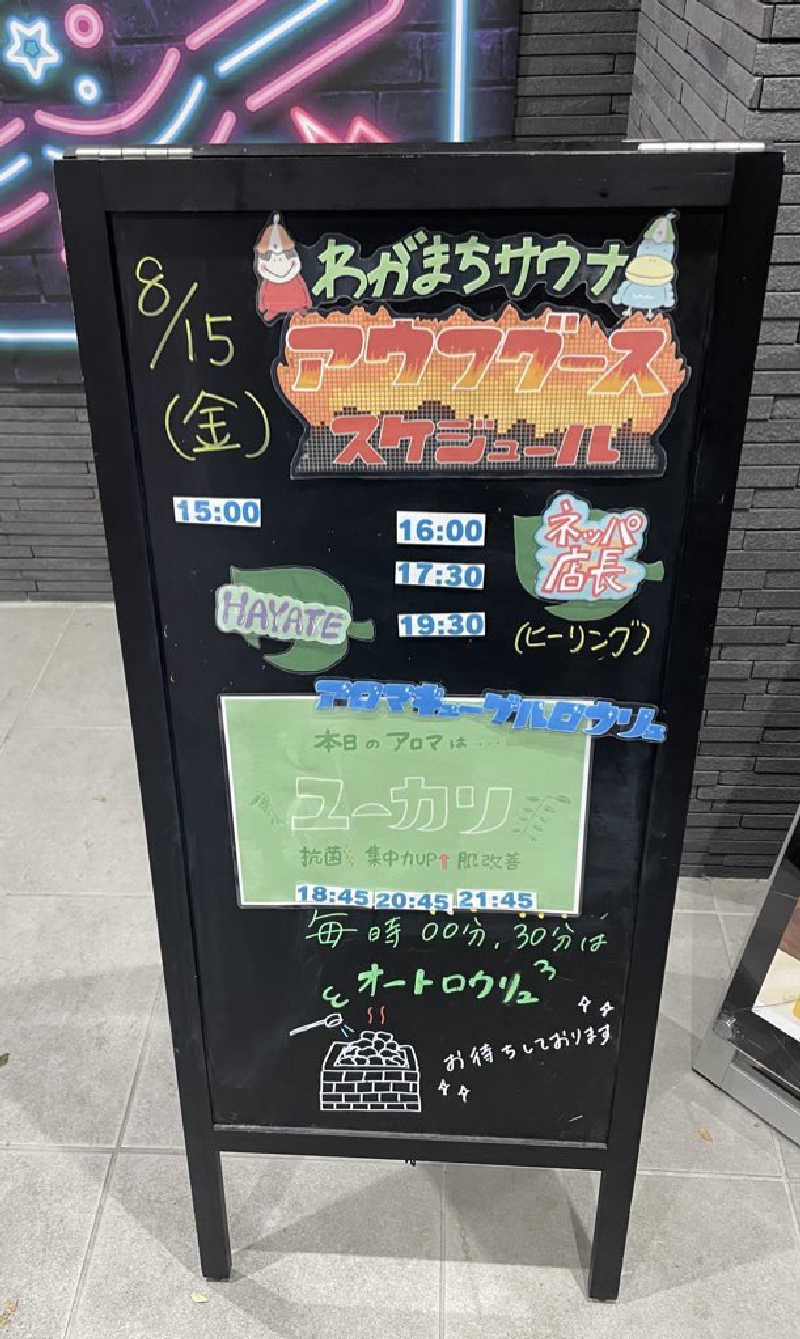 わがまちサウナ
8/15
(金)
アウフグース
スケジュール
15:00
16:00
ネッパ
店長
17:30
HAYATE
19:30
(ヒーリング)
アロマキューゲルロウリュ
本日のアロマは…
ユーカリ
抗菌 集中力UP↑ 肌改善
18:45 20:45 21:45
毎時00分、30分は
オートロウリュ
お待ちしております